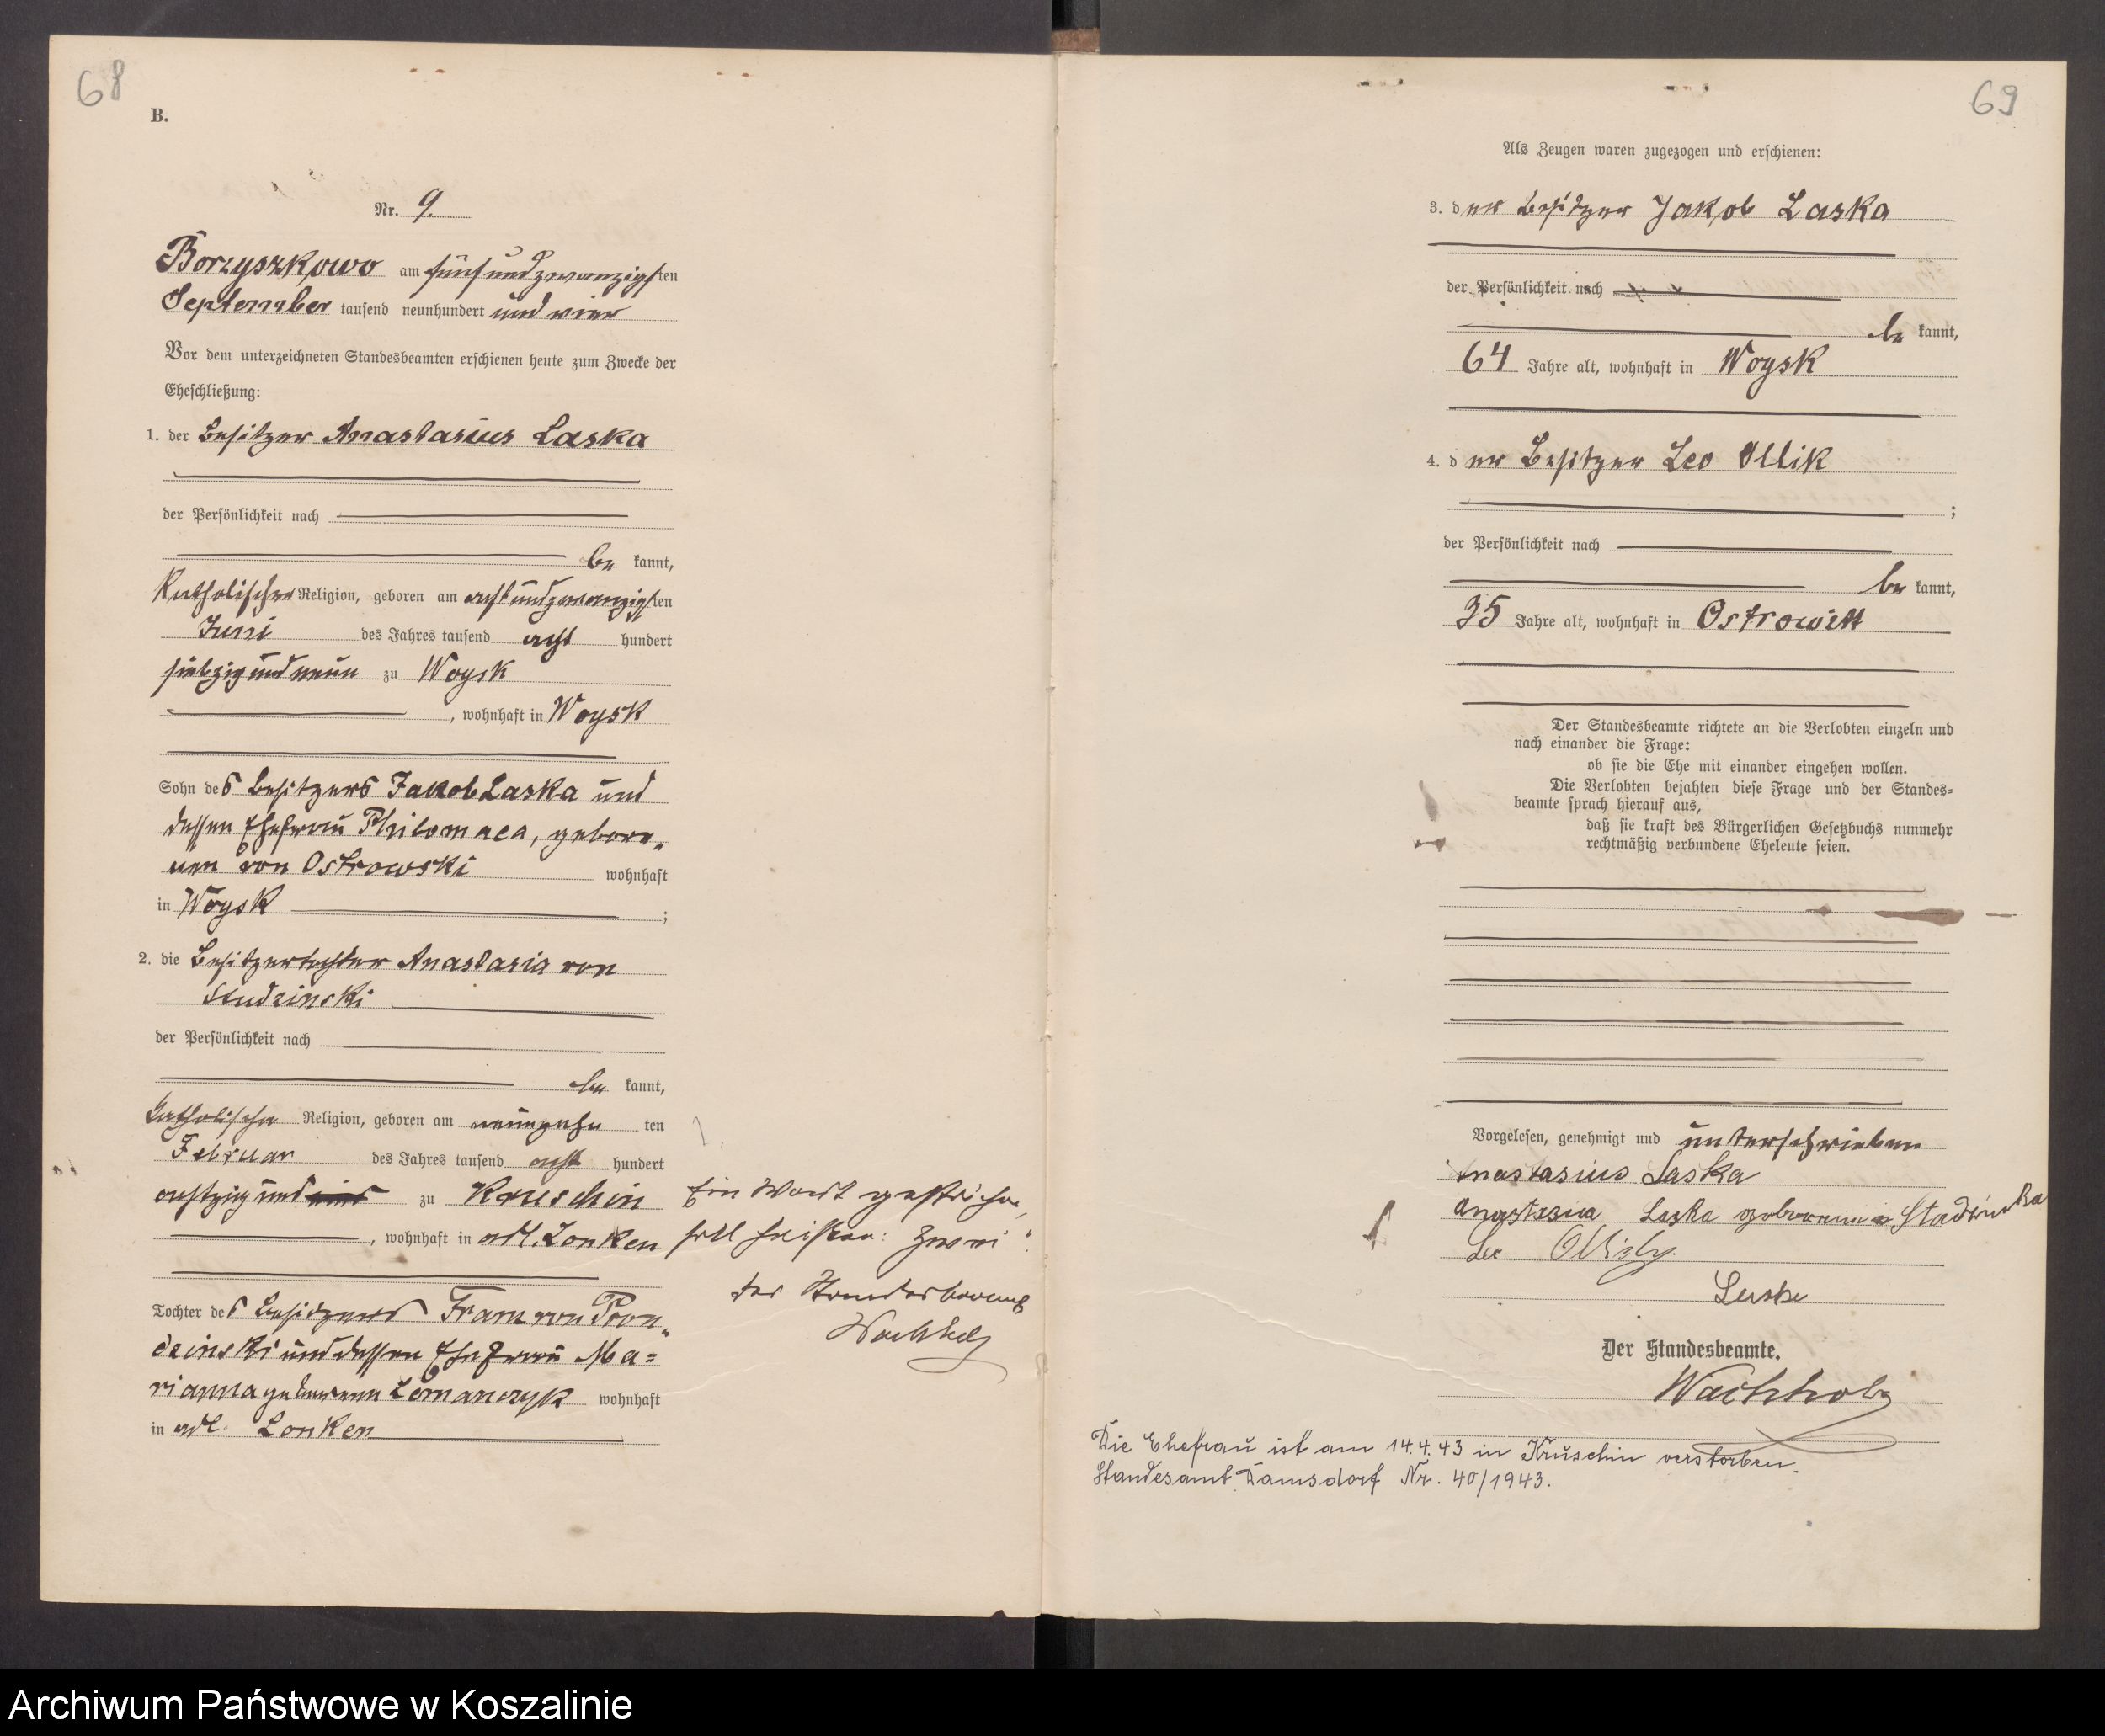 68
B.
Nr. 9.
Borzyszkowo am fünfundzwanzigsten
September tausend neunhundert und vier
Vor dem unterzeichneten Standesbeamten erschienen heute zum Zwecke der
Eheschließung:
1. der Besitzer Anastasius Laska
der Persönlichkeit nach
be kannt,
Katholischer Religion, geboren am achtundzwanzigsten
Juni des Jahres tausend acht hundert
siebzig und neun zu Woysk
, wohnhaft in Woysk
Sohn des Besitzers Jakob Laska und
dessen Ehefrau Philomaea, gebore„
nen von Ostrowski wohnhaft
in Woysk ;
2. die Besitzertochter Anastasia von
Studzinski
der Persönlichkeit nach
be kannt,
Katholischer Religion, geboren am neunzehn ten
Februar des Jahres tausend acht hundert
achtzig und zu Kruschin
, wohnhaft in adl. Lonken
Tochter des Besitzers Franz von
und dessen Ehefrau Ma=
rianna geborenen Lemanczyk wohnhaft
in adl. Lonken
Ein Wort gestrichen,
soll heißen: „zwei“.
Der Standesbeamte
Wachholz
69
Als Zeugen waren zugezogen und erschienen:
3. der Besitzer Jakob Laska
der Persönlichkeit nach
be kannt,
64 Jahre alt, wohnhaft in Woysk
4. der Besitzer Leo Ollik
;
der Persönlichkeit nach
be kannt,
35 Jahre alt, wohnhaft in Ostrowitt
Der Standesbeamte richtete an die Verlobten einzeln und
nach einander die Frage:
ob sie die Ehe mit einander eingehen wollen.
Die Verlobten bejahten diese Frage und der Standes=
beamte sprach hierauf aus,
daß sie kraft des Bürgerlichen Gesetzbuchs nunmehr
rechtmäßig verbundene Eheleute seien.
Vorgelesen, genehmigt und unterschrieben
Anastasius Laska
Anastasia Laska geborene
Leo
Der Standesbeamte.
Wachholz
Die Ehefrau ist am 14.4.43 in Kruschin verstorben.
Standesamt Damsdorf Nr. 40/1943.
Archiwum Państwowe w Koszalinie